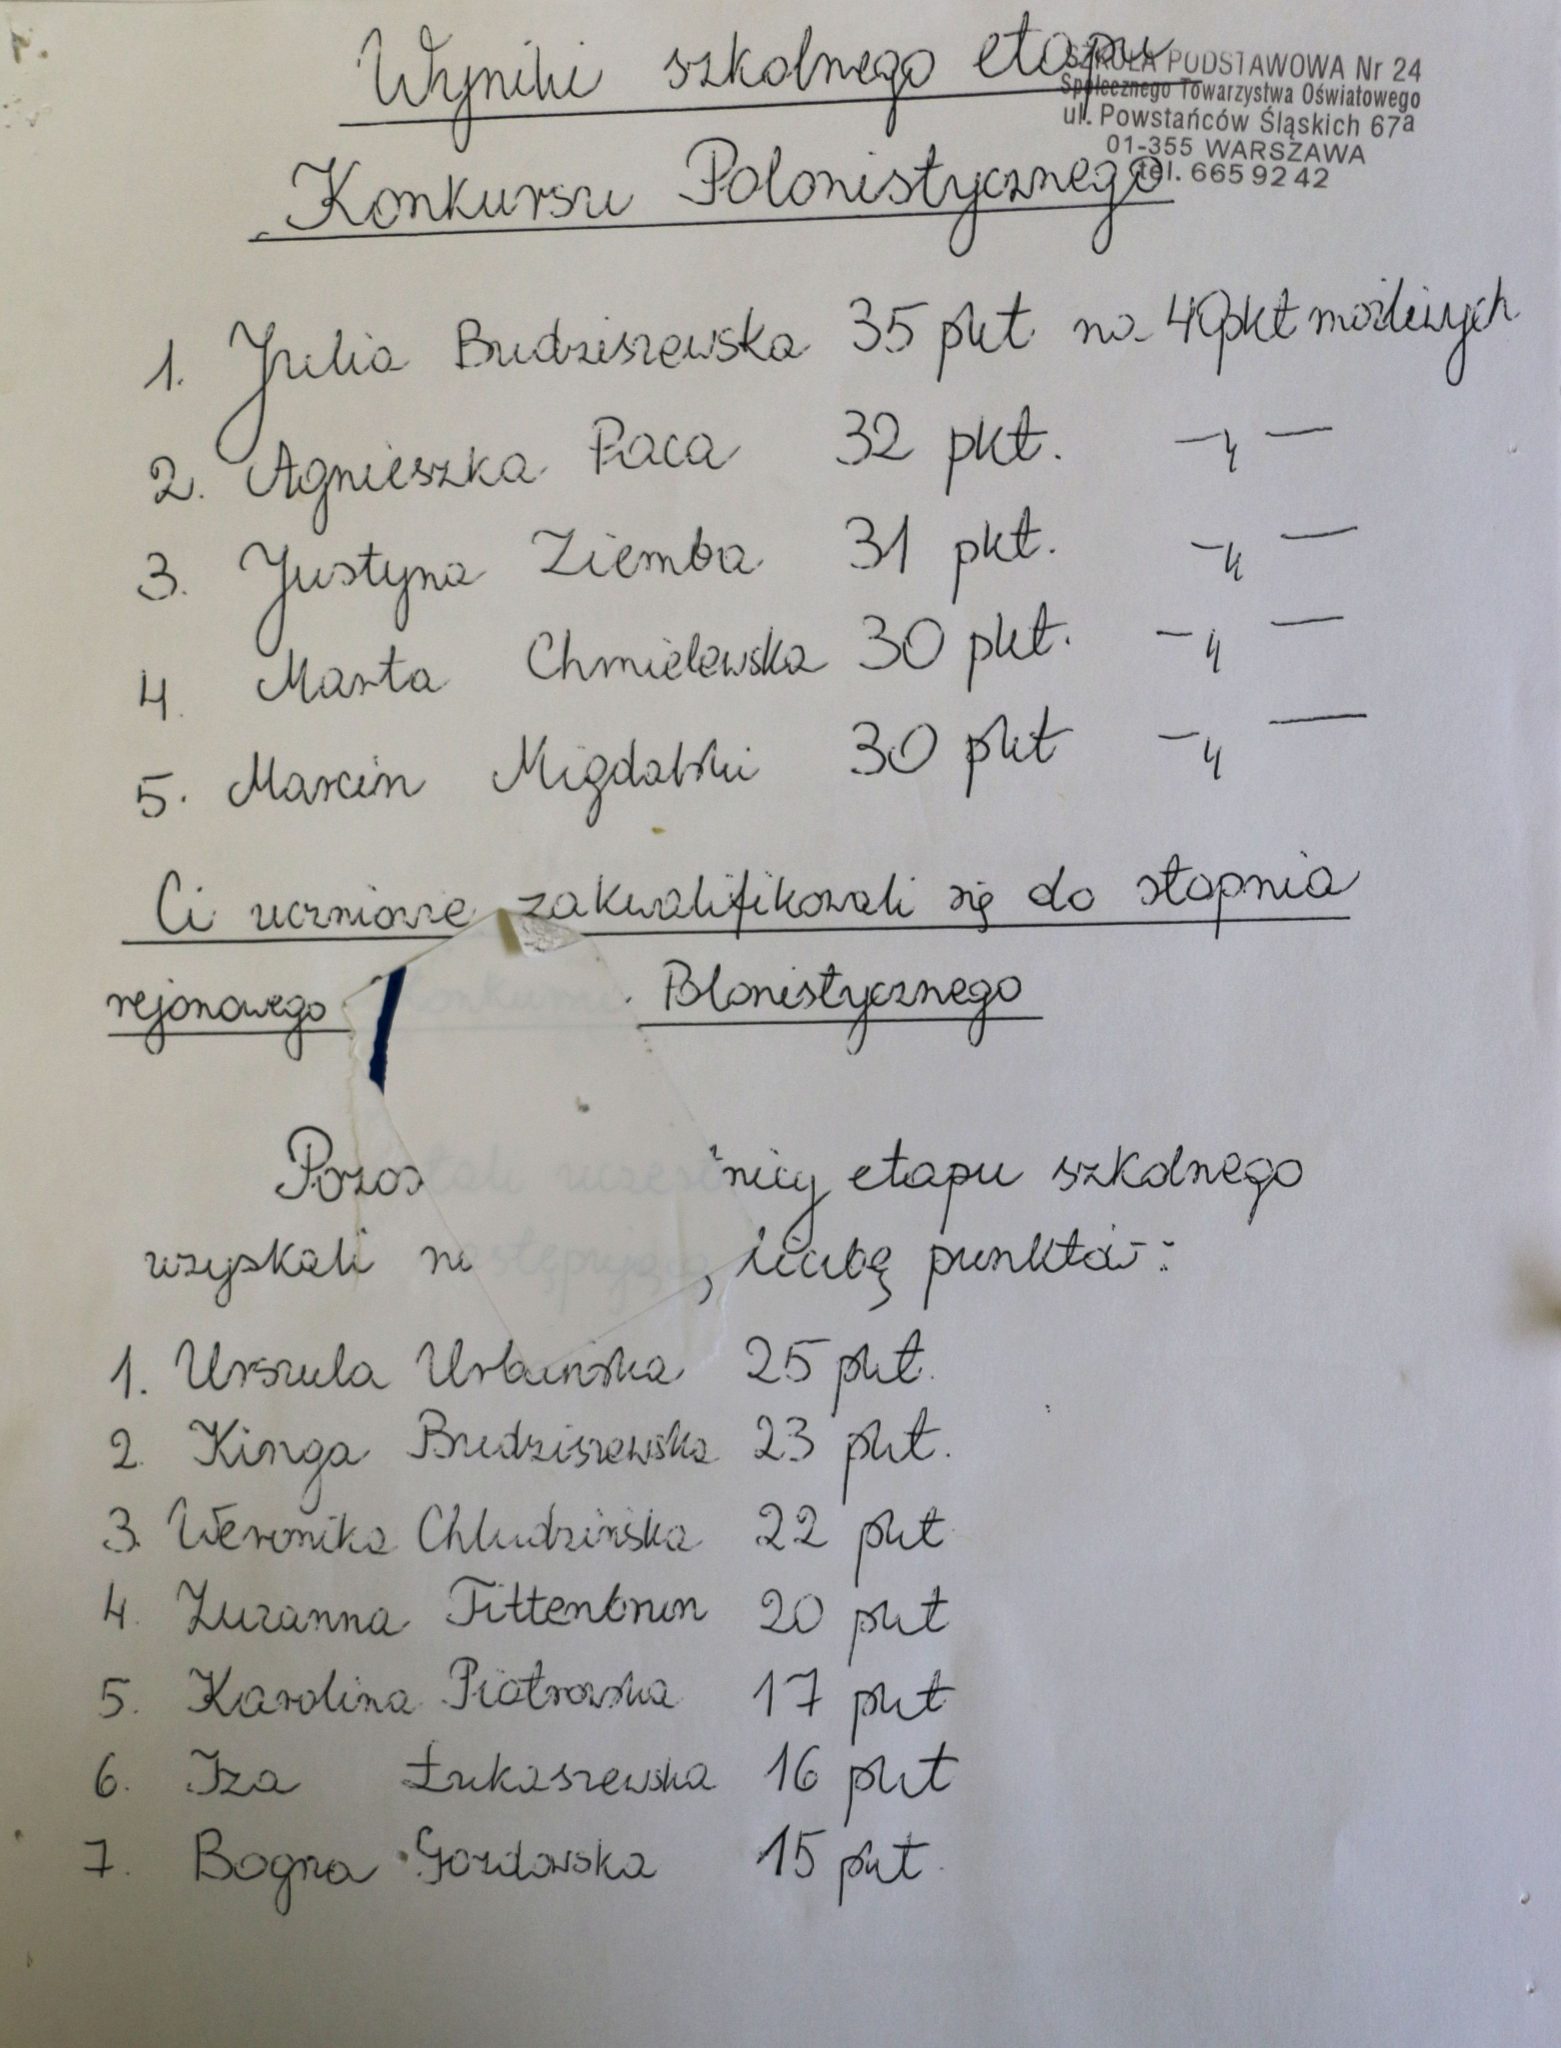 Wyniki szkolnego etapu
SZKOŁA PODSTAWOWA Nr 24
Społecznego Towarzystwa Oświatowego
ul. Powstańców Śląskich 67a
01-355 WARSZAWA
tel. 665 92 42
Konkursu Polonistycznego
1. Julia Budziszewska 35 pkt na 40 pkt możliwych
2. Agnieszka Paca 32 pkt. —〃—
3. Justyna Ziemba 31 pkt. —〃—
4. Marta Chmielewska 30 pkt. —〃—
5. Marcin Migdalski 30 pkt —〃—
Ci uczniowie zakwalifikowali się do stopnia
rejonowego Konkursu Polonistycznego
Pozostali uczestnicy etapu szkolnego
uzyskali następującą liczbę punktów:
1. Urszula Urbańska 25 pkt.
2. Kinga Budziszewska 23 pkt.
3. Weronika Chludzińska 22 pkt
4. Zuzanna Tittenbrun 20 pkt
5. Karolina Piotrowska 17 pkt
6. Iza Łukaszewska 16 pkt
7. Bogna Gozdowska 15 pkt.